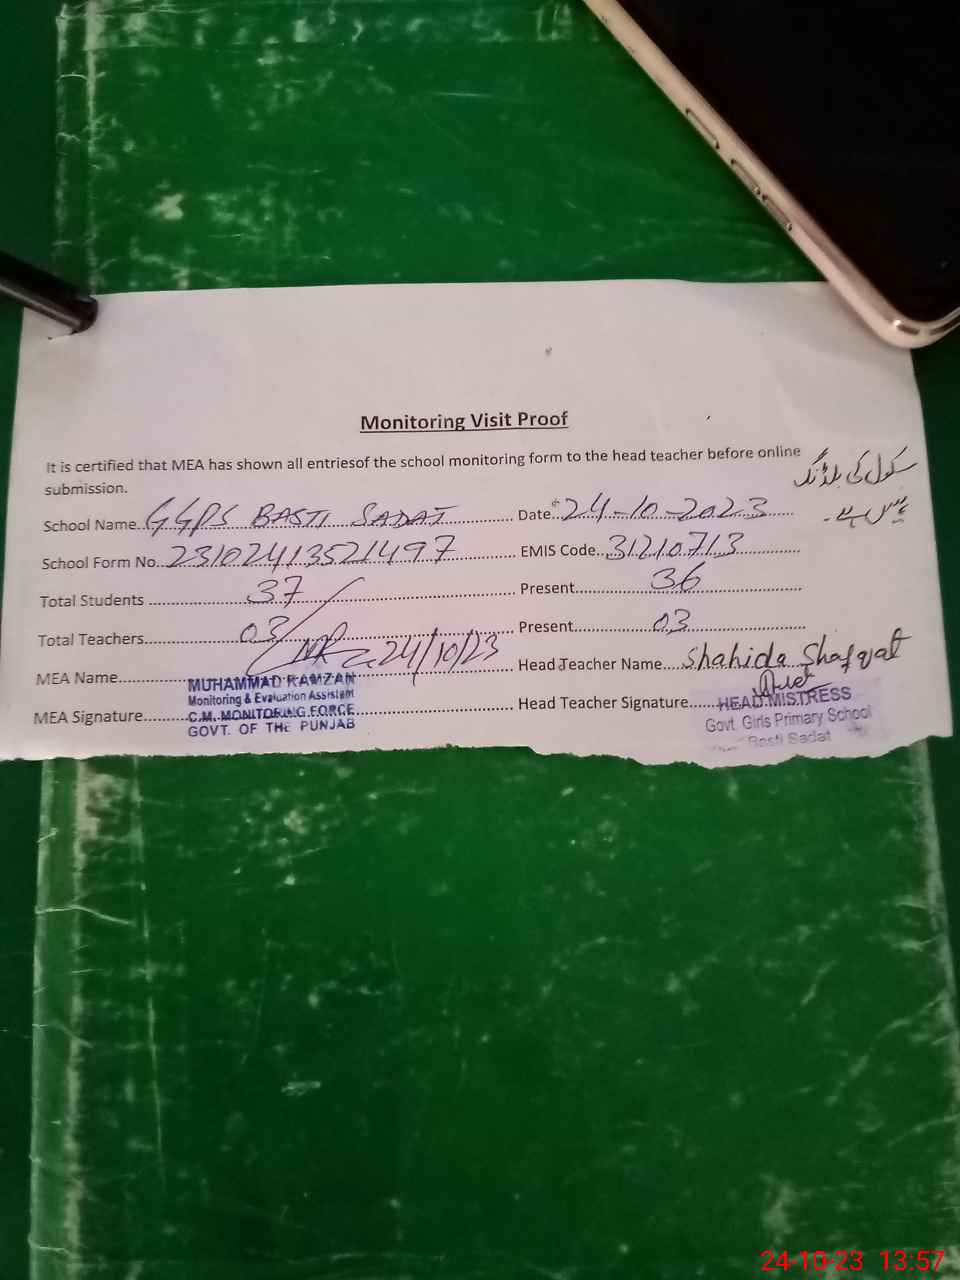 Monitoring Visit Proof
It is certified that MEA has shown all entriesof the school monitoring form to the head teacher before online
submission.
سکول کی بلڈنگ
School Name GGPS BASTI SADAT Date 24-10-2023
School Form No. 23102413521497 EMIS Code 31210713
Total Students 37 Present 36
Total Teachers 03 Present 03
24/10/23
MEA Name Head Teacher Name Shahida Shafqat
MUHAMMAD RAMZAN
Monitoring & Evaluation Assistant
MEA Signature Head Teacher Signature
C.M. MONITORING FORCE
GOVT. OF THE PUNJAB
HEAD MISTRESS
Govt. Girls Primary School
Basti Sadat
24-10-23 13:57